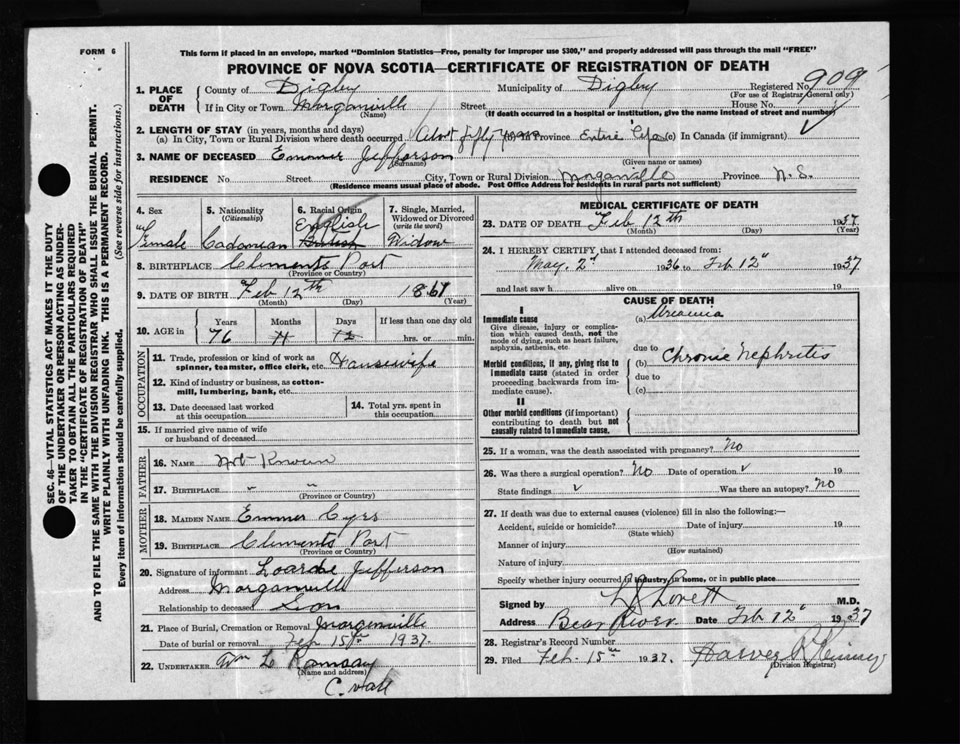 FORM 6
This form if placed in an envelope, marked "Dominion Statistics—Free, penalty for improper use $300," and properly addressed will pass through the mail "FREE"
PROVINCE OF NOVA SCOTIA—CERTIFICATE OF REGISTRATION OF DEATH
SEC. 46—VITAL STATISTICS ACT MAKES IT THE DUTY
OF THE UNDERTAKER OR PERSON ACTING AS UNDER-
TAKER TO OBTAIN ALL THE PARTICULARS REQUIRED
IN THE "CERTIFICATE OF REGISTRATION OF DEATH"
AND TO FILE THE SAME WITH THE DIVISION REGISTRAR WHO SHALL ISSUE THE BURIAL PERMIT.
WRITE PLAINLY WITH UNFADING INK. THIS IS A PERMANENT RECORD.
Every item of information should be carefully supplied. (See reverse side for instructions.)
1. PLACE OF DEATH
County of Digby Municipality of Digby Registered No. 909
(For use of Registrar General only)
If in City or Town Morganville Street House No.
(Name) (If death occurred in a hospital or institution, give the name instead of street and number)
2. LENGTH OF STAY (in years, months and days)
(a) In City, Town or Rural Division where death occurred About fifty years (b) In Province Entire Life (c) In Canada (if immigrant) ✓
3. NAME OF DECEASED Emmer Jefferson
(Surname) (Given name or names)
RESIDENCE No. Street Town or Rural Division Morganville Province N. S.
(Residence means usual place of abode. Post Office Address for residents in rural parts not sufficient)
4. Sex 5. Nationality (Citizenship) 6. Racial Origin 7. Single, Married, Widowed or Divorced (write the word)
Female Canadian English British Widow
8. BIRTHPLACE Clements Port
(Province or Country)
9. DATE OF BIRTH Feb 12th 1861
(Month) (Day) (Year)
10. AGE in Years Months Days If less than one day old
76 hrs. or min.
OCCUPATION
11. Trade, profession or kind of work as spinner, teamster, office clerk, etc. Housewife
12. Kind of industry or business, as cotton-mill, lumbering, bank, etc.
13. Date deceased last worked at this occupation
14. Total yrs. spent in this occupation
15. If married give name of wife or husband of deceased
FATHER
16. NAME Not Known
17. BIRTHPLACE " "
(Province or Country)
MOTHER
18. MAIDEN NAME Emmer Cyrs
19. BIRTHPLACE Clements Port
(Province or Country)
20. Signature of informant Jefferson
Address Morganville
Relationship to deceased Son
21. Place of Burial, Cremation or Removal Morganville
Date of burial or removal Feb 15th 1937.
22. UNDERTAKER Wm L Ramsay
(Name and address)
C. Vale
MEDICAL CERTIFICATE OF DEATH
23. DATE OF DEATH Feb 12th 1937
(Month) (Day) (Year)
24. I HEREBY CERTIFY that I attended deceased from:
May. 2d 1936 to Feb 12" 1937
and last saw h alive on 19
CAUSE OF DEATH
I
Immediate cause (a) Uraemia
Give disease, injury or complication which caused death, not the mode of dying, such as heart failure, asphyxia, asthenia, etc.
due to
Morbid conditions, if any, giving rise to immediate cause (stated in order proceeding backwards from immediate cause).
(b) Chronic Nephritis
due to
(c)
II
Other morbid conditions (if important) contributing to death but not causally related to immediate cause.
25. If a woman, was the death associated with pregnancy? No
26. Was there a surgical operation? No Date of operation ✓ 19
State findings ✓ Was there an autopsy? No
27. If death was due to external causes (violence) fill in also the following:—
Accident, suicide or homicide? Date of injury 19
(State which)
Manner of injury
(How sustained)
Nature of injury
Specify whether injury occurred in industry, in home, or in public place
Signed by L J Lovett M.D.
Address Bear River Date Feb 12" 1937
28. Registrar's Record Number
29. Filed Feb. 15th 1937.
(Division Registrar)